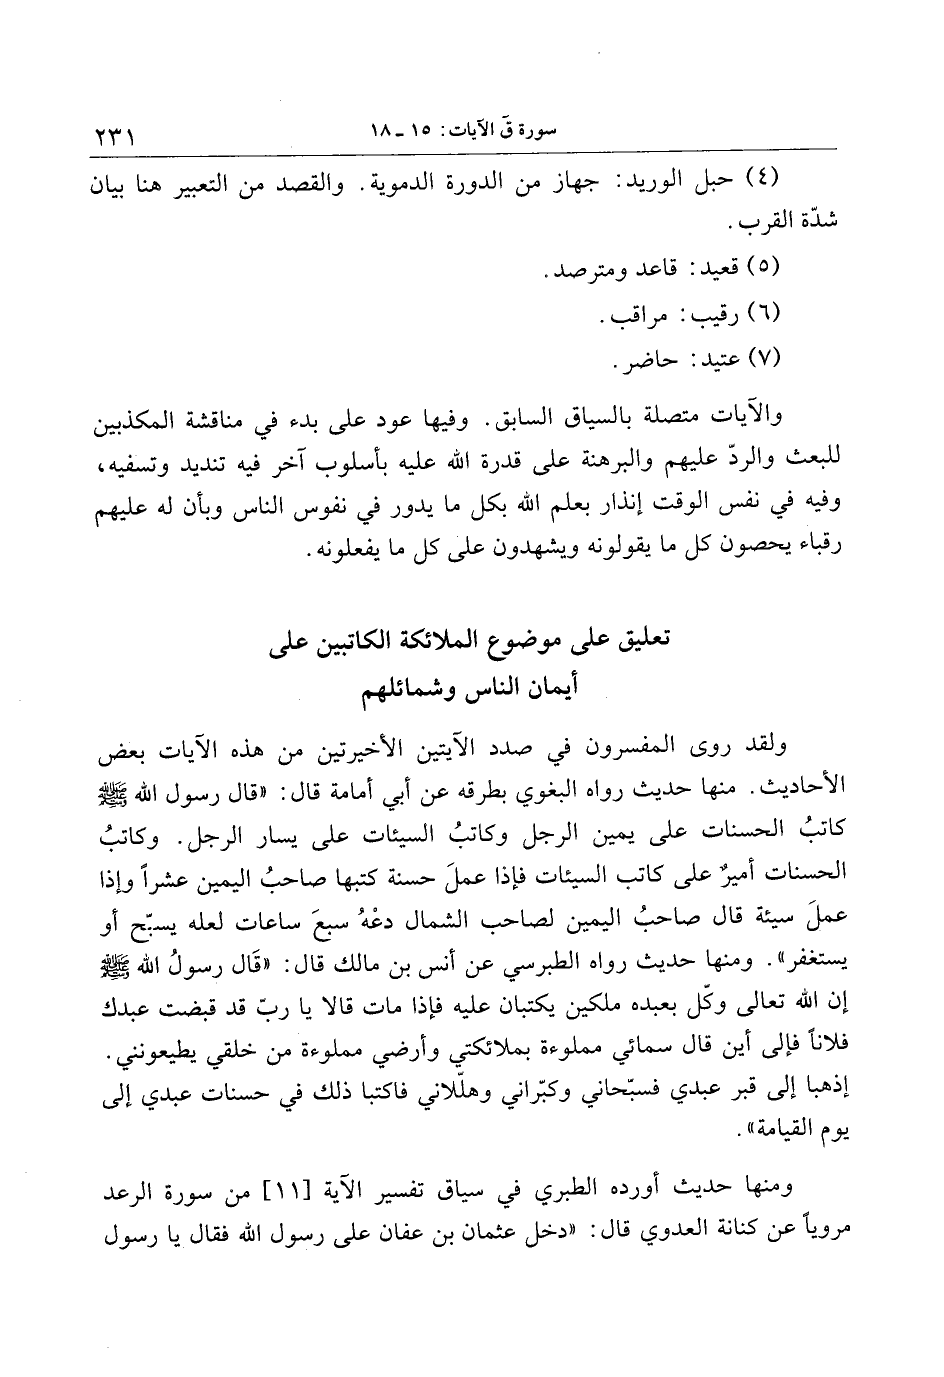 سورة قَ الآيات: ١٥ ـ ١٨
٢٣١
(٤) حبل الوريد: جهاز من الدورة الدموية. والقصد من التعبير هنا بيان
شدّة القرب.
(٥) قعيد: قاعد ومترصد.
(٦) رقيب: مراقب.
(٧) عتيد: حاضر.
والآيات متصلة بالسياق السابق. وفيها عود على بدء في مناقشة المكذبين
للبعث والردّ عليهم والبرهنة على قدرة الله عليه بأسلوب آخر فيه تنديد وتسفيه،
وفيه في نفس الوقت إنذار بعلم الله بكل ما يدور في نفوس الناس وبأن له عليهم
رقباء يحصون كل ما يقولونه ويشهدون على كل ما يفعلونه.
تعليق على موضوع الملائكة الكاتبين على
أيمان الناس وشمائلهم
ولقد روى المفسرون في صدد الآيتين الأخيرتين من هذه الآيات بعض
الأحاديث. منها حديث رواه البغوي بطرقه عن أبي أمامة قال: «قال رسول الله ﷺ
كاتبُ الحسنات على يمين الرجل وكاتبُ السيئات على يسار الرجل. وكاتبُ
الحسنات أميرٌ على كاتب السيئات فإذا عملَ حسنة كتبها صاحبُ اليمين عشراً وإذا
عملَ سيئة قال صاحبُ اليمين لصاحب الشمال دعْهُ سبعَ ساعات لعله يسبّح أو
يستغفر». ومنها حديث رواه الطبرسي عن أنس بن مالك قال: «قَال رسولُ الله ﷺ
إن الله تعالى وكّل بعبده ملكين يكتبان عليه فإذا مات قالا يا ربّ قد قبضت عبدك
فلاناً فإلى أين قال سمائي مملوءة بملائكتي وأرضي مملوءة من خلقي يطيعونني.
إذهبا إلى قبر عبدي فسبّحاني وكبّراني وهلّلاني فاكتبا ذلك في حسنات عبدي إلى
يوم القيامة».
ومنها حديث أورده الطبري في سياق تفسير الآية [١١] من سورة الرعد
مروياً عن كنانة العدوي قال: «دخل عثمان بن عفان على رسول الله فقال يا رسول